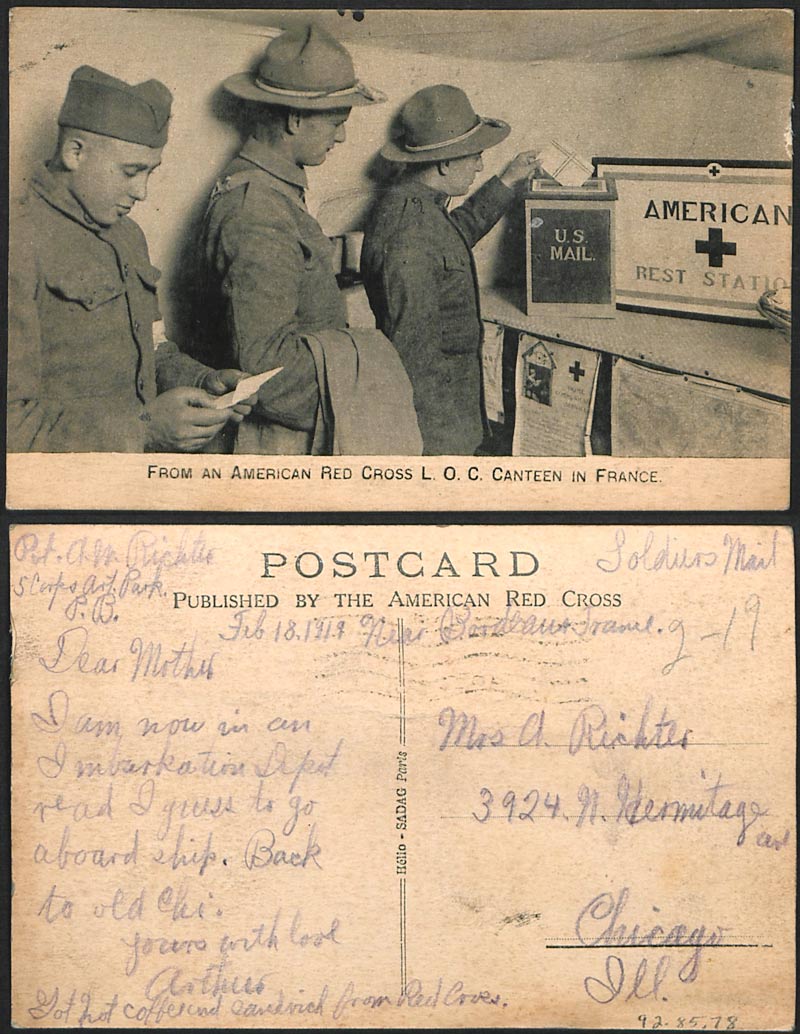 U.S.
MAIL.
AMERICAN
REST STATIO
FROM AN AMERICAN RED CROSS L. O. C. CANTEEN IN FRANCE.
Pvt. A. W. Richter
5 Corps Art. Park.
P. B.
POSTCARD
Soldiers Mail
PUBLISHED BY THE AMERICAN RED CROSS
Feb 18. 1919 Near Bordeaux France.
2-19
Dear Mother
I am now in an
Imbarkation Depot
read I guess to go
aboard ship. Back
to old Chi.
yours with love
Arthur
Got hot coffe and sandwich from Red Cross.
Hélio - SADAG Paris
Mrs A. Richter
3924. N. Hermitage
ave
Chicago
Ill.
92.85.78